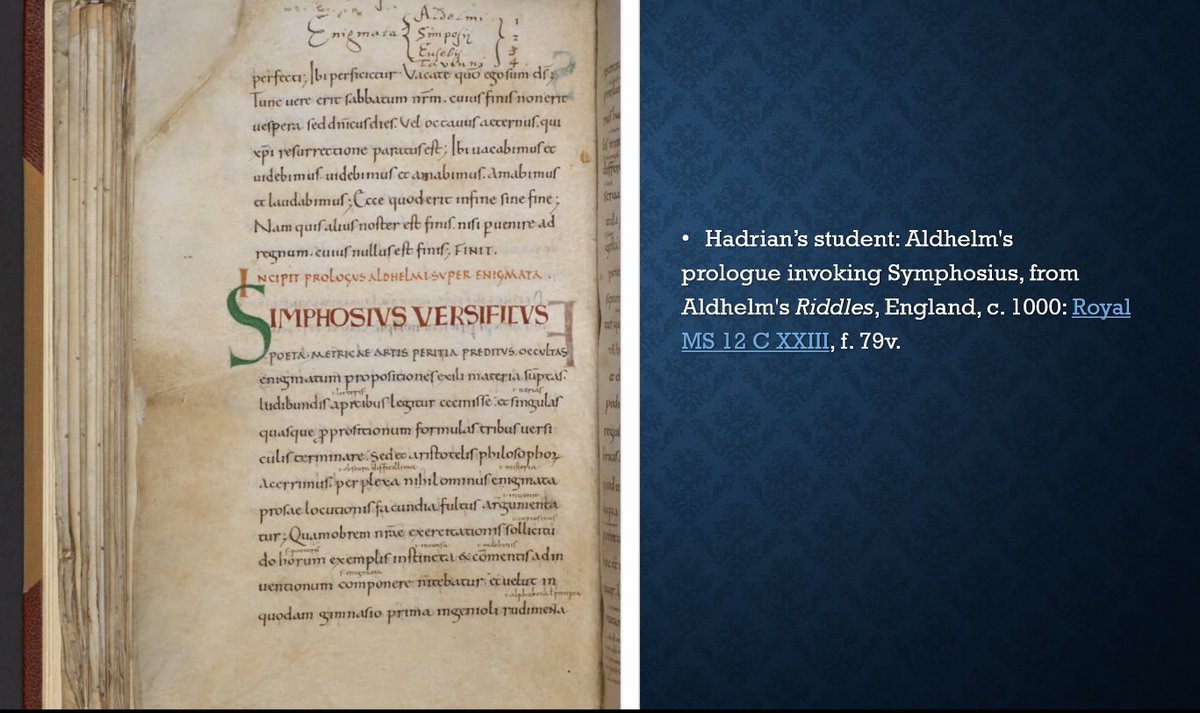 Enigmata
Aldelmi. 1
Simposij 2
Eusebij 3
Tatuini 4
perfecti; Ibi perficietur. Vacate quō ego sum dꝭ;
Tunc uere erit sabbatum nr̄m. cuius finis non erit
uespera. sed dn̄icus dies. Vel octauus aeternus. qui
xp̄i resurrectione paratus est; Ibi uacabimus et
uidebimus. uidebimus et amabimus. Amabimus
et laudabimus; Ecce quod erit in fine sine fine;
Nam quis alius noster est finis. nisi puenire ad
regnum. cuius nullus est finis; FINIT.
INCIPIT PROLOGUS ALDHELMI SUPER ENIGMATA.
SIMPHOSIVS VERSIFICVS
POETA. METRICAE ARTIS PERITIA PREDITUS. OCCULTAS
enigmatum propositiones exili materia sūptas.
ludibundis apicibus legitur cecinisse. et singulas
quasque ꝓpositionum formulas tribus uersi
culis terminare. Sed et aristotelis philosophoꝝ
acerrimus. perplexa nihilominus enigmata
prosae locutionis facundia fultus argumenta
tur; Quamobrem nr̄ae exercitationis sollicitu
do horum exemplis instincta & cōmentis ad in
uentionum componere nitebatur. et uelut in
quodam gimnasio prima ingenioli rudimenta
• Hadrian’s student: Aldhelm's
prologue invoking Symphosius, from
Aldhelm's Riddles, England, c. 1000: Royal
MS 12 C XXIII, f. 79v.